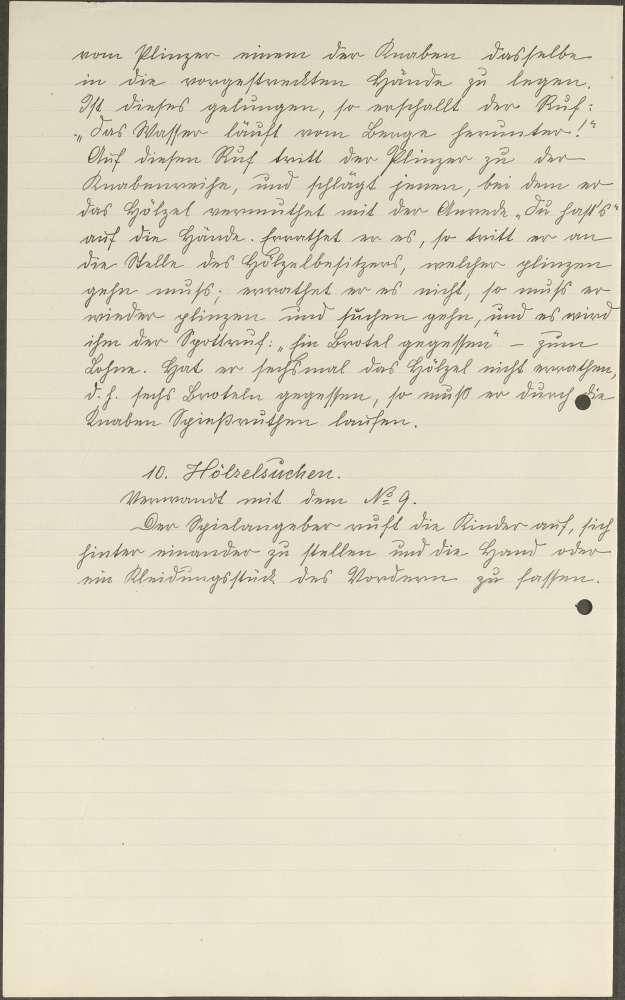 vom Plinzer einem der Knaben dasselbe
in die vorgestreckten Hände zu legen.
Ist dieses gelungen, so erschallt der Ruf:
„Das Wasser läuft vom Berge herunter!“
Auf diesen Ruf tritt der Plinzer zu der
Knabenreihe, und schlägt jenen, bei dem er
das Hölzel vermuthet mit der Anrede „Du hast's“
auf die Hände. Errathet er es, so tritt er an
die Stelle des Hölzelbesitzers, welcher plinzen
gehn muß; errathet er es nicht, so muß er
wieder plinzen und suchen gehn, und es wird
ihm der Spottruf: „Ein Brotel gegessen“ – zum
Lohne. Hat er sechsmal das Hölzel nicht errathen,
d. h. sechs Broteln gegessen, so muß er durch die
Knaben Spießruthen laufen.
10. Hölzelsuchen.
Verwandt mit dem No 9.
Der Spielangeber ruft die Kinder auf, sich
hinter einander zu stellen und die Hand oder
ein Kleidungsstück des Vordern zu fassen.